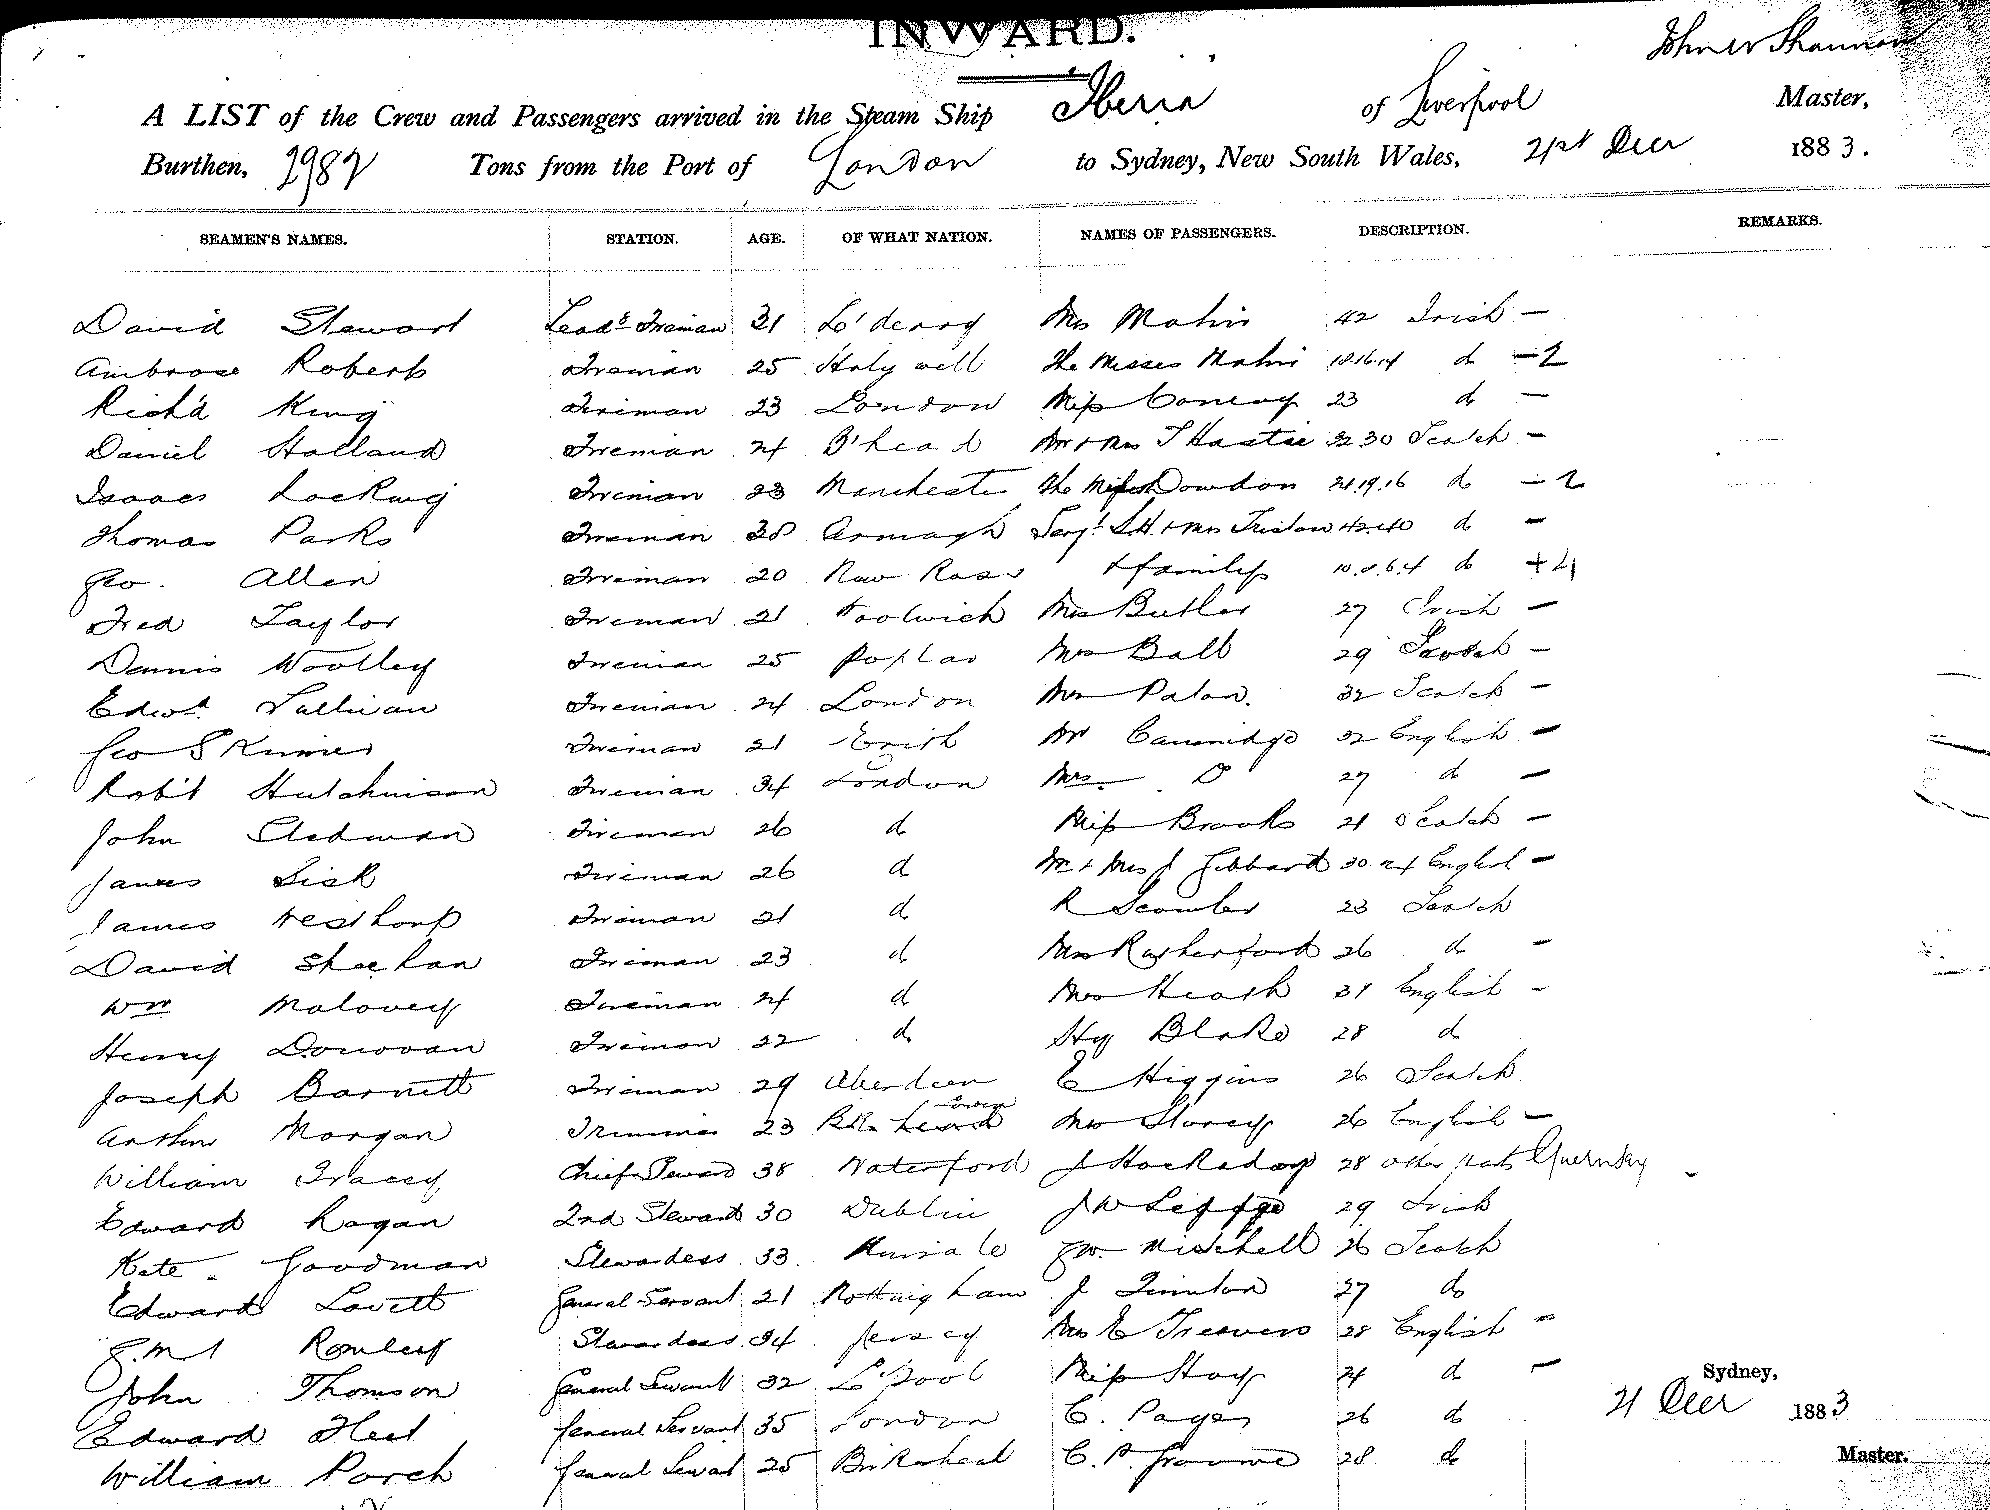 INWARD.
John W Shannon
A LIST of the Crew and Passengers arrived in the Steam Ship Iberia of Liverpool Master,
Burthen, 2982 Tons from the Port of London to Sydney, New South Wales, 21st Decr 1883.
SEAMEN'S NAMES. STATION. AGE. OF WHAT NATION. NAMES OF PASSENGERS. DESCRIPTION. REMARKS.
David Stewart Leadg Fireman 31 Lo'derry Mrs Mahir 42 Irish —
Ambrose Roberts Fireman 25 Holywell The Misses Mahir 18.16.14 d — 2
Rich'd King Fireman 23 London Miss Conway 23 d —
Daniel Holland Fireman 24 B'head Mr & Mrs T Hastie 32 30 Scotch —
Isaac Locking Fireman 23 Manchester The Misses Dowdon 21.19.16 d — 2
Thomas Parks Fireman 38 Armagh Sergt & Mrs 42.40 d —
Geo. Allen Fireman 20 New Ross & family 10.8.6.4 d + 4
Fred Taylor Fireman 21 Woolwich Mrs Butler 27 Irish —
Dennis Woolley Fireman 25 Poplar Mrs Ball 29 Scotch —
Edwd Sullivan Fireman 24 London Mrs Paton. 32 Scotch —
Geo Skinner Fireman 21 Erith Mr Cammidge 32 English —
Rob't Hutchinson Fireman 34 London Mrs D 27 d —
John Stedman Fireman 26 d Miss Brooks 21 Scotch —
James Sisk Fireman 26 d Mr & Mrs J Gibbard 30.24 English —
James Westhorp Fireman 21 d R 23 Scotch
David Sheehan Fireman 23 d Mrs Rutherford 26 d —
Wm Moloney Fireman 24 d Mrs Heath 31 English -
Henry Donovan Fireman 22 d Hy Blake 28 d
Joseph Barnett Fireman 29 Aberdeen E Higgins 26 Scotch
Arthur Morgan Trimmer 23 Mrs Storey 26 English —
William Tracey Chief Steward 38 Waterford J Hockaday 28 other parts Guernsey
Edward Ragan 2nd Steward 30 Dublin J W 29 Irish
Kate Goodman Stewardess 33 Kinsale Mitchell 26 Scotch
Edward Lovett General Servant 21 Nottingham J 27 do
Rowley Stewardess 34 Jersey Mrs E Treevers 28 English -
John Thomson General Servant 32 L'pool Miss Hay 24 d —
Edward Heel General Servant 35 London C. Page 26 d
William Porch General Servant 25 Birkenhead C. P. Groome 28 do
Sydney,
21 Decr 1883
Master.